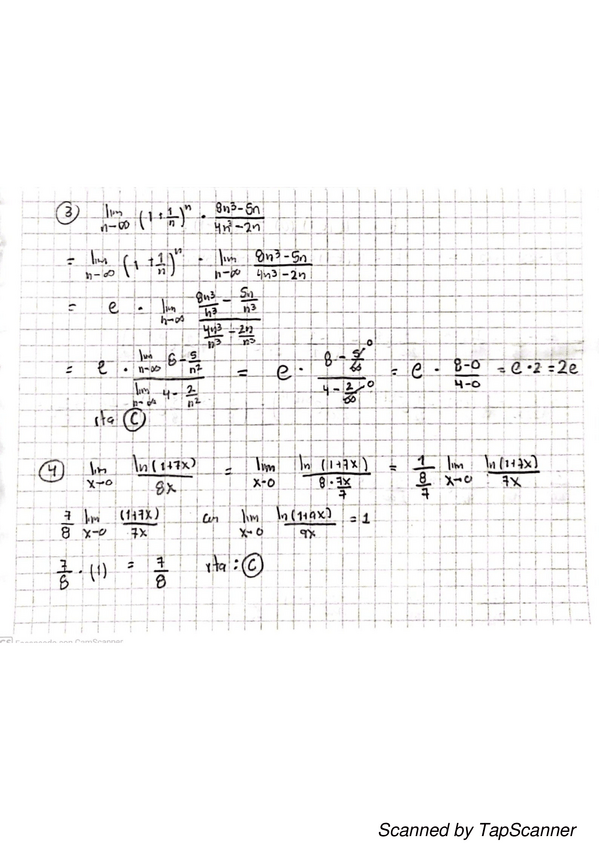 ③ lim n→∞ (1+1/n)^n · (8n³-5n)/(4n³-2n)
= lim n→∞ (1+1/n)^n · lim n→∞ (8n³-5n)/(4n³-2n)
= e · lim n→∞ (8n³/n³ - 5n/n³)/(4n³/n³ - 2n/n³)
= e · (lim n→∞ 8-5/n²)/(lim n→∞ 4-2/n²) = e · (8-5/∞ 0)/(4-2/∞ 0) = e · (8-0)/(4-0) = e·2 = 2e
rta Ⓒ
④ lim x→0 ln(1+7x)/8x = lim x→0 ln(1+7x)/(8·7x/7) = 1/(8/7) lim x→0 ln(1+7x)/7x
7/8 lim x→0 (1+7x)/7x con lim x→0 ln(1+ax)/ax = 1
7/8 · (1) = 7/8 rta: Ⓒ
CS
Scanned by TapScanner